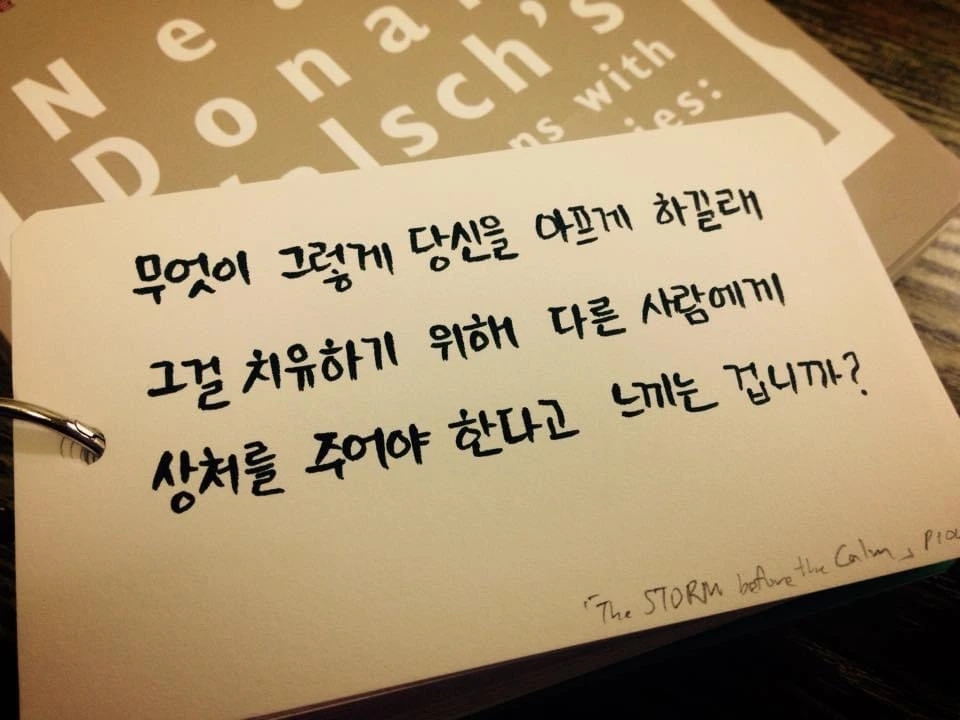 Donal
lsch's
ns with
ies:
무엇이 그렇게 당신을 아프게 하길래
그걸 치유하기 위해 다른 사람에게
상처를 주어야 한다고 느끼는 겁니까?
「The STORM before the Calm」 P10